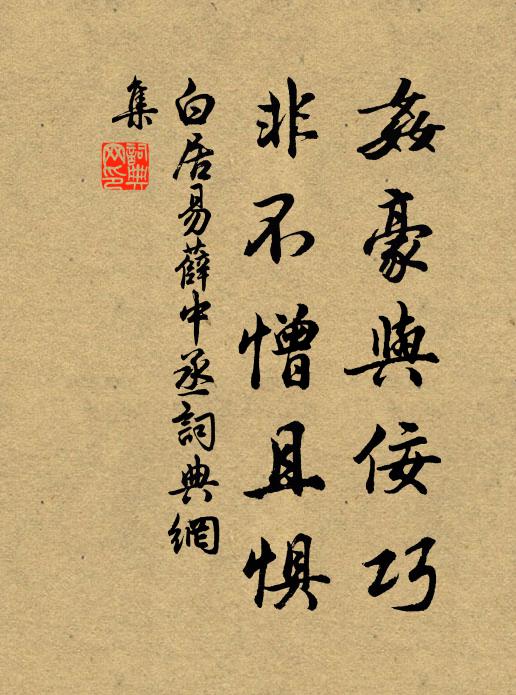 姦豪與佞巧
非不憎且懼
白居易薛中丞詞典網
集
詞典網印